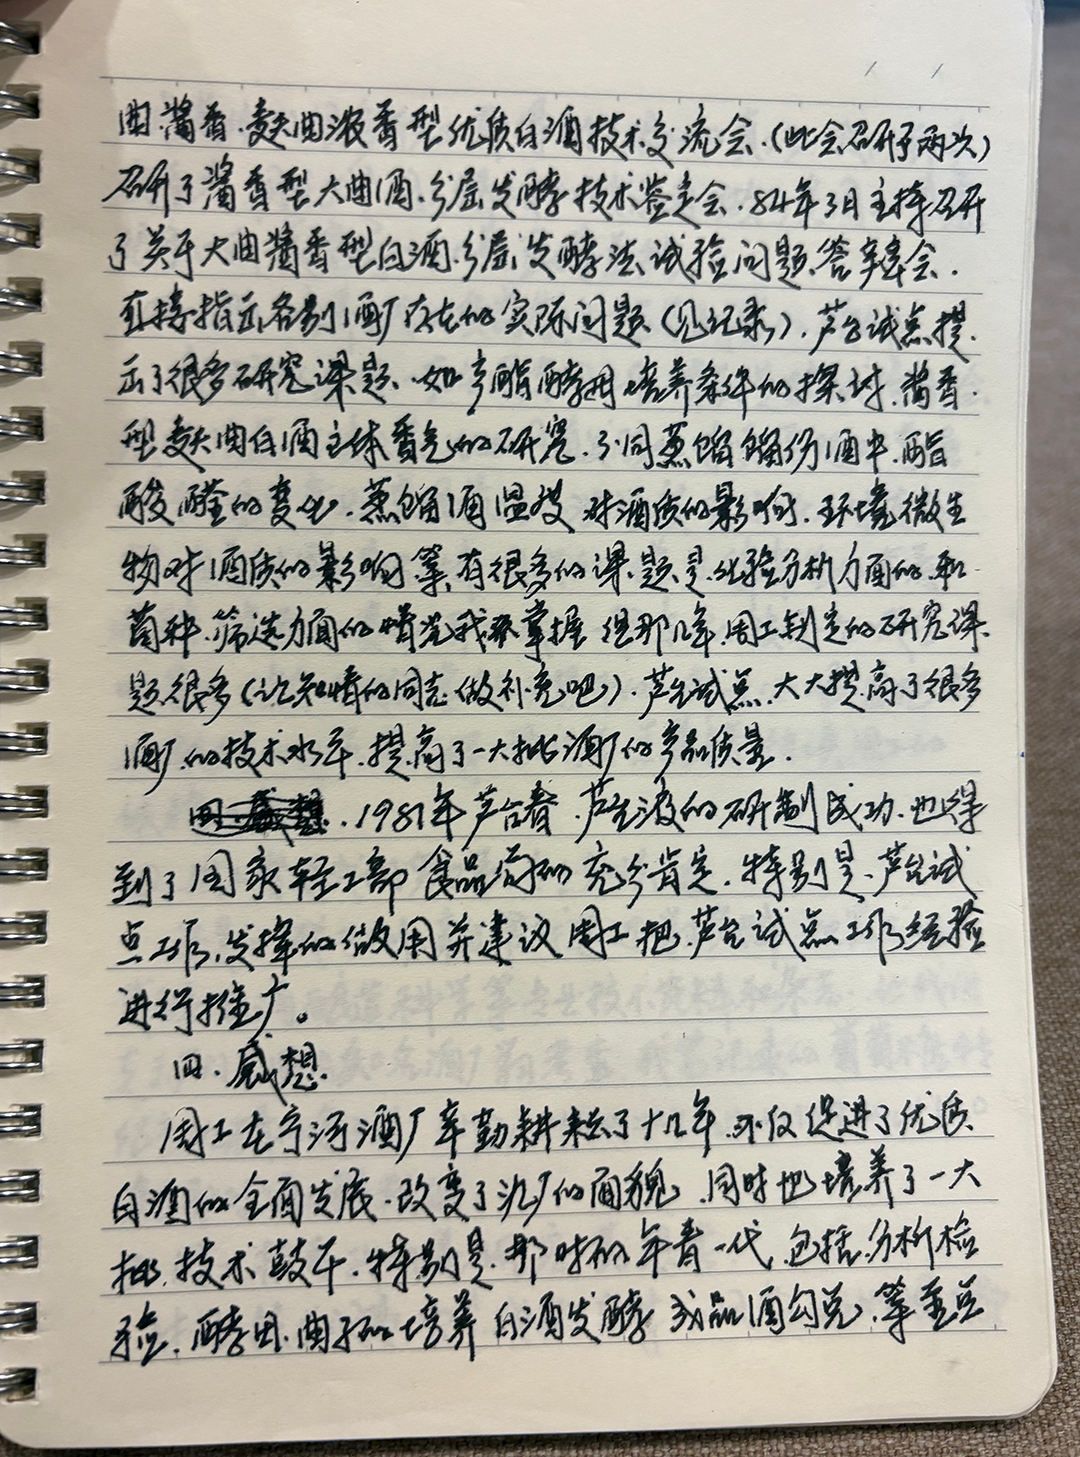 曲酱香.麸曲浓香型优质白酒技术交流会.(此会召开了两次)
召开了酱香型大曲酒.分层发酵技术鉴定会.84年3日主持召开
了关于大曲酱香型白酒.分层发酵法试验问题答辩会.
直接指示各别酒厂存在的实际问题(见记录).芦台试点提
示了很多研究课题.如产酯酵母培养条件的探讨.酱香
型麸曲白酒主体香气的研究.不同蒸馏馏份酒中.酯
酸醛的变化.蒸馏酒温度对酒质的影响.环境微生
物对酒质的影响等.有很多的课题是.化验分析方面的和
菌种.筛选方面的情况我不掌握但那几年周工制定的研究课
题很多(让知情的同志做补充吧).芦台试点.大大提高了很多
酒厂的技术水平.提高了一大批酒厂的产品质量.
.1981年芦台春.芦台液的研制成功.也得
到了国家轻工部食品局的充分肯定.特别是芦台试
点工作.发挥的做用并建议周工把.芦台试点工作经验
进行推广。
四.感想.
周工在宁河酒厂辛勤耕耘了十几年.不仅促进了优质
白酒的全面发展.改变了沉厂的面貌.同时也培养了一大
批.技术鼓干.特别是.那时的年青一代.包括.分析检
验.酵母.曲子的培养白酒发酵成品酒勾兑.等至总